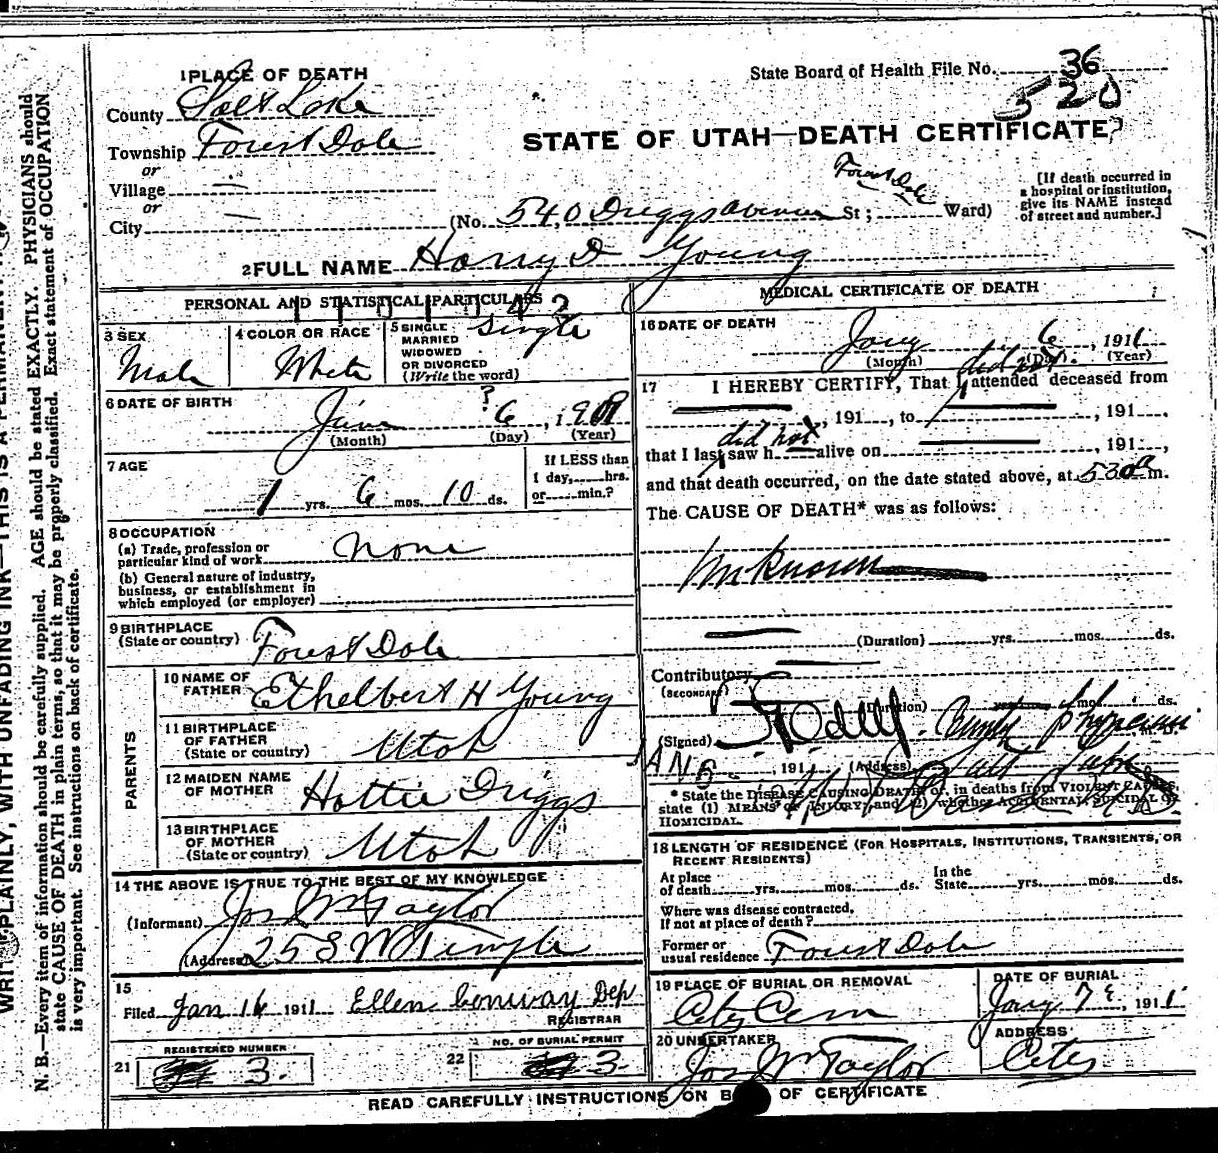 1 PLACE OF DEATH
State Board of Health File No. 36
520
County Salt Lake
Township Forest Dale
or
Village —
or
City —
STATE OF UTAH—DEATH CERTIFICATE
(No. 540 Driggs Avenue St; Forest Dale Ward)
[If death occurred in a hospital or institution, give its NAME instead of street and number.]
2 FULL NAME Harry D Young
PERSONAL AND STATISTICAL PARTICULARS
3 SEX
Male
4 COLOR OR RACE
White
5 SINGLE
MARRIED
WIDOWED
OR DIVORCED
(Write the word)
Single
6 DATE OF BIRTH
June ? 6, 1909
(Month) (Day) (Year)
7 AGE
1 yrs. 6 mos. 10 ds.
If LESS than
1 day, hrs.
or min.?
8 OCCUPATION
(a) Trade, profession or
particular kind of work None
(b) General nature of industry,
business, or establishment in
which employed (or employer)
9 BIRTHPLACE
(State or country) Forest Dale
PARENTS
10 NAME OF
FATHER Ethelbert H Young
11 BIRTHPLACE
OF FATHER
(State or country) Utah
12 MAIDEN NAME
OF MOTHER Hattie Driggs
13 BIRTHPLACE
OF MOTHER
(State or country) Utah
14 THE ABOVE IS TRUE TO THE BEST OF MY KNOWLEDGE
(Informant) Jos Wm Taylor
(Address) 25 S W Temple
15
Filed Jan 16 1911 Ellen Conway Dep
REGISTRAR
21 REGISTERED NUMBER
3.
22 NO. OF BURIAL PERMIT
3.
MEDICAL CERTIFICATE OF DEATH
16 DATE OF DEATH
Jany 6, 1911
(Month) (Day) (Year)
17 I HEREBY CERTIFY, That I did not attended deceased from
, 191 , to , 191 ,
that I last did not saw h alive on , 191 ,
and that death occurred, on the date stated above, at 530 a m.
The CAUSE OF DEATH* was as follows:
Unknown
(Duration) yrs. mos. ds.
Contributory
(SECONDARY)
(Duration) mos. ds.
(Signed) County Physician M. D.
JAN 6 , 191 (Address) Salt Lake
* State the DISEASE CAUSING DEATH or, in deaths from VIOLENT CAUSES,
state (1) MEANS OF INJURY; and (2) whether ACCIDENTAL, SUICIDAL OR
HOMICIDAL.
18 LENGTH OF RESIDENCE (FOR HOSPITALS, INSTITUTIONS, TRANSIENTS, OR
RECENT RESIDENTS)
At place
of death yrs. mos. ds.
In the
State yrs. mos. ds.
Where was disease contracted,
If not at place of death?
Former or
usual residence Forest Dale
19 PLACE OF BURIAL OR REMOVAL
City Cem
DATE OF BURIAL
Jany 7th, 1911
20 UNDERTAKER
Jos Wm Taylor
ADDRESS
City
READ CAREFULLY INSTRUCTIONS ON B OF CERTIFICATE
N. B.—Every item of information should be carefully supplied. AGE should be stated EXACTLY. PHYSICIANS should
state CAUSE OF DEATH in plain terms, so that it may be properly classified. Exact statement of OCCUPATION
is very important. See instructions on back of certificate.
PLAINLY, WITH UNFADING INK—THIS IS A